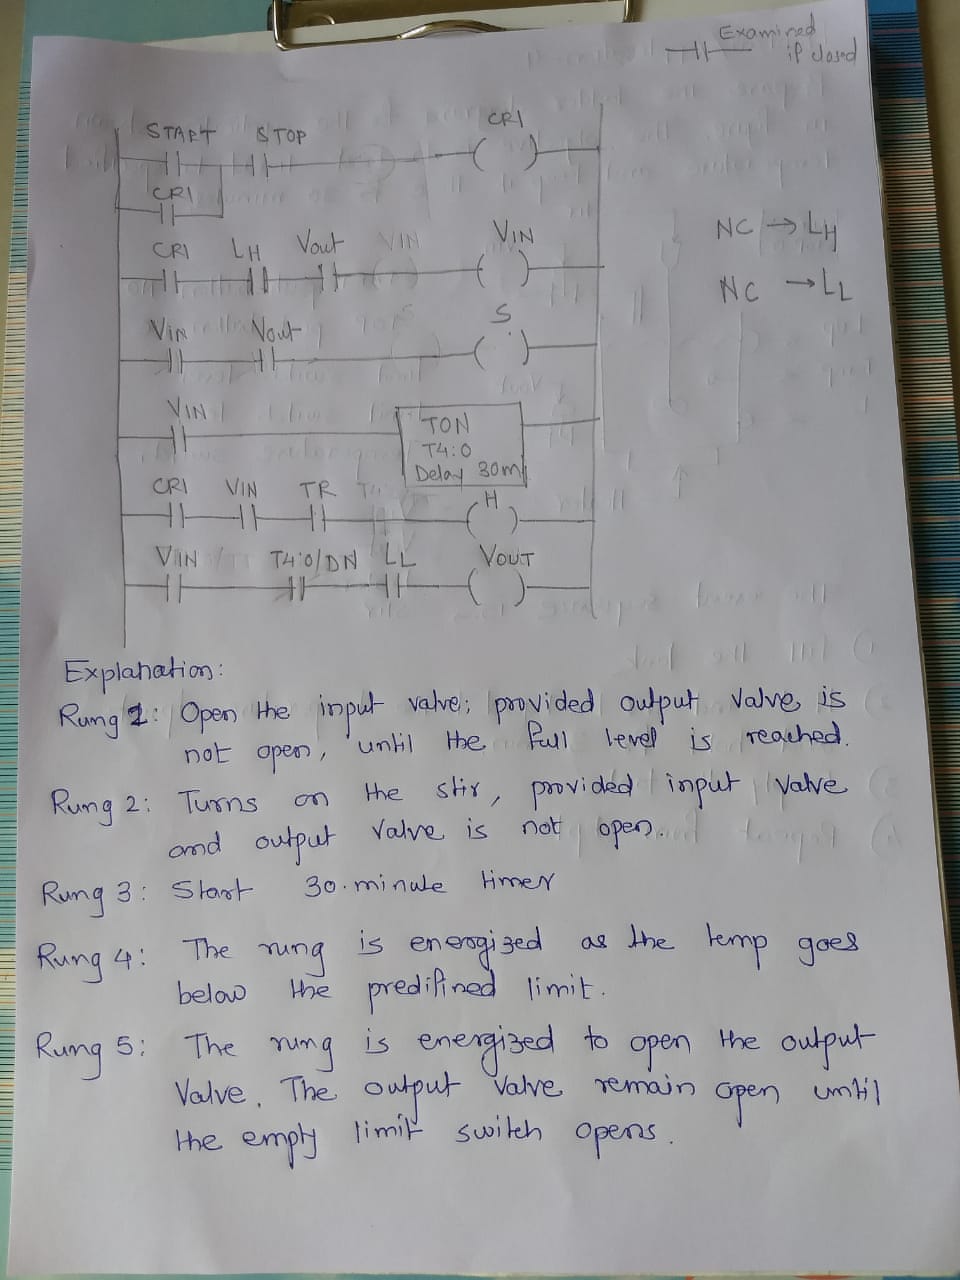 Examined
if closed
START STOP CR1
CR1
CR1 LH Vout VIN VIN
NC → LH
NC → LL
VIN Vout S
VIN
TON
T4:0
Delay 30m
CR1 VIN TR H
VIN T4:0/DN LL VOUT
Explanation:
Rung 1: Open the input valve; provided output valve is
not open, until the full level is reached.
Rung 2: Turns on the stir, provided input valve
and output valve is not open.
Rung 3: Start 30.minute timer
Rung 4: The rung is energized as the temp goes
below the predifined limit.
Rung 5: The rung is energized to open the output
Valve. The output valve remain open until
the empty limit switch opens.